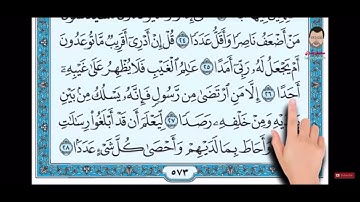 مَنْ أَضْعَفُ نَاصِرًا وَأَقَلُّ عَدَدًا ٢٤ قُلْ إِنْ أَدْرِي أَقَرِيبٌ مَّا تُوعَدُونَ
أَمْ يَجْعَلُ لَهُ رَبِّي أَمَدًا ٢٥ عَالِمُ الْغَيْبِ فَلَا يُظْهِرُ عَلَى غَيْبِهِ
أَحَدًا ٢٦ إِلَّا مَنِ ارْتَضَى مِن رَّسُولٍ فَإِنَّهُ يَسْلُكُ مِن بَيْنِ
يَدَيْهِ وَمِنْ خَلْفِهِ رَصَدًا ٢٧ لِّيَعْلَمَ أَن قَدْ أَبْلَغُوا رِسَالَاتِ
وَأَحَاطَ بِمَا لَدَيْهِمْ وَأَحْصَى كُلَّ شَيْءٍ عَدَدًا ٢٨
٥٧٣